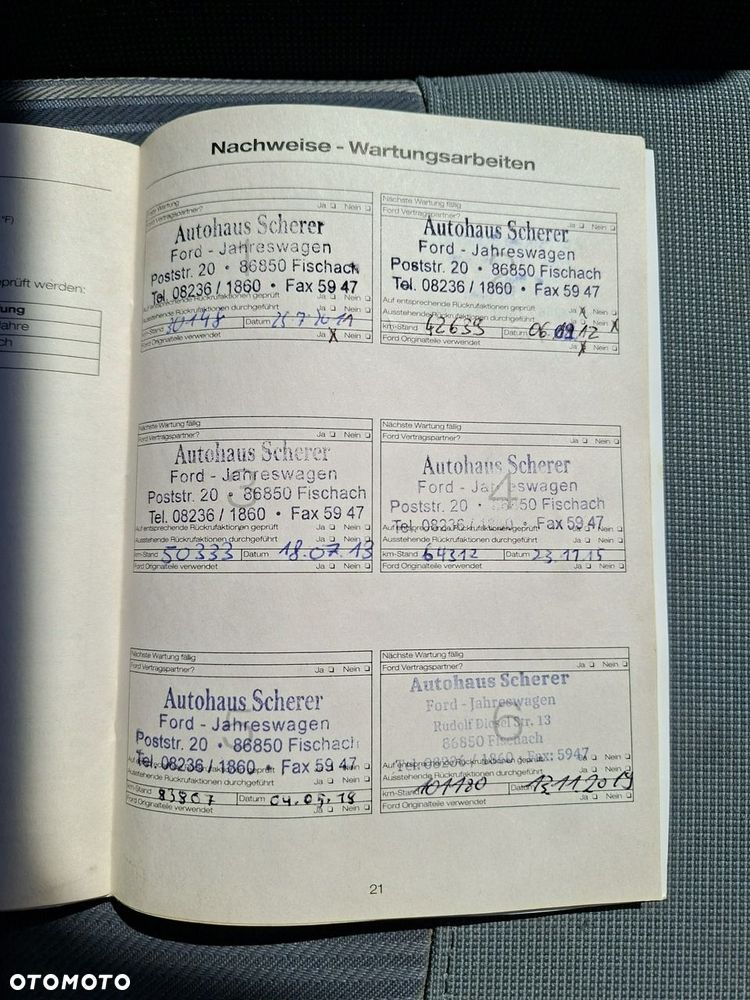 °F)
prüft werden:
Nachweise - Wartungsarbeiten
Ford Vertragspartner? Ja Nein
Autohaus Scherer
Ford - Jahreswagen
Poststr. 20 • 86850 Fischach
Tel. 08236 / 1860 • Fax 59 47
Auf entsprechende Rückrufaktionen geprüft
Ausstehende Rückrufaktionen durchgeführt Ja Nein
km-Stand 30148 Datum 25.7.2011
Ford Originalteile verwendet Ja X Nein
Nächste Wartung fällig
Ford Vertragspartner? Ja Nein
Autohaus Scherer
Ford - Jahreswagen
Poststr. 20 • 86850 Fischach
Tel. 08236 / 1860 • Fax 59 47
Auf entsprechende Rückrufaktionen geprüft Ja X Nein
Ausstehende Rückrufaktionen durchgeführt Ja Nein X
km-Stand 42635 Datum 06. 12
Ford Originalteile verwendet Ja X Nein
Nächste Wartung fällig
Ford Vertragspartner? Ja Nein
3
Autohaus Scherer
Ford - Jahreswagen
Poststr. 20 • 86850 Fischach
Tel. 08236 / 1860 • Fax 59 47
Auf entsprechende Rückrufaktionen geprüft Ja Nein
Ausstehende Rückrufaktionen durchgeführt Ja Nein
km-Stand 50333 Datum 18.07.13
Ford Originalteile verwendet Ja Nein
Nächste Wartung fällig
Ford Vertragspartner? Ja Nein
4
Autohaus Scherer
Ford - Jahreswagen
Poststr. 20 • 86850 Fischach
Tel. 08236 / 1860 • Fax 59 47
Auf entsprechende Rückrufaktionen geprüft Ja Nein
Ausstehende Rückrufaktionen durchgeführt Ja Nein
km-Stand 64312 Datum 23.11.15
Ford Originalteile verwendet Ja Nein
Nächste Wartung fällig
Ford Vertragspartner? Ja Nein
5
Autohaus Scherer
Ford - Jahreswagen
Poststr. 20 • 86850 Fischach
Tel. 08236 / 1860 • Fax 59 47
Auf entsprechende Rückrufaktionen geprüft Ja Nein
Ausstehende Rückrufaktionen durchgeführt Ja Nein
km-Stand 83907 Datum 04.05.18
Ford Originalteile verwendet Ja Nein
Nächste Wartung fällig
Ford Vertragspartner? Ja Nein
6
Autohaus Scherer
Ford - Jahreswagen
Rudolf Diesel Str. 13
86850 Fischach
Tel. 08236 / 1860 • Fax: 5947
Auf entsprechende Rückrufaktionen geprüft Ja Nein
Ausstehende Rückrufaktionen durchgeführt Ja Nein
km-Stand 101180 Datum 13.11.2019
Ford Originalteile verwendet Ja Nein
21
OTOMOTO